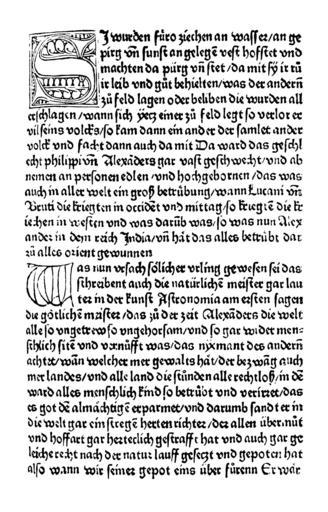 SI wurden fúro ziechen an wasser/an ge
pirg vñ sunst an gelegē vest hofstet vnd
machten da púrg vñ stet/da mit sÿ ir rů
ir leib vnd gůt behielten/was der andern̄
zů feld lagen oder beliben die wurden all
erschlagen/wann sich ÿecz einer zů feld legt so verlor er
vil seins volcks/so kam dann ein ander der samlet ander
volck vnd facht dann auch da mit Da ward das geschl
echt philippi vñ Alexāders gar vast geschwecht/vnd ab
nemen an personen edlen/vnd hochgebornen/das was
auch in aller welt ein groß betrübung/wann Lucani vñ
Bruti die kriegten in occidēt vnd mittag/so kriegē die kr
iechen in westen vnd was darüb was/so was nun Alex
ander in dem reich India/vñ hat das alles betrübt dar
zů alles orient gewunnen
WAs nun vrsach sölicher vrling gewesen sei das
schreibent auch die natürlichē meister gar lau
ter in der kunst Astronomia am ersten sagen
die götlichē maister/das zů der zeit Alexāders die welt
alle so vngetrew so vngehorsam/vnd so gar wider men-
schlich sitē vnd vernüfft was/das nyemant des andern
achtet/wañ welcher mer gewalts hat/der bezwāg auch
mer landes/vnd alle land die stůnden alle rechtloß/in dē
ward alles menschlich kind so betrübt vnd verirret/das
es got dē almächtigē erparmet/vnd darumb sandt er in
die welt gar ein strēgē herten richter/der allen übermůt
vnd hoffart gar herterlich gestrafft hat vnd auch gar ge
leiche recht nach der natur lauff gesetzt vnd gepoten hat
also wann wir seiner gepot eins über fürenn Er wär